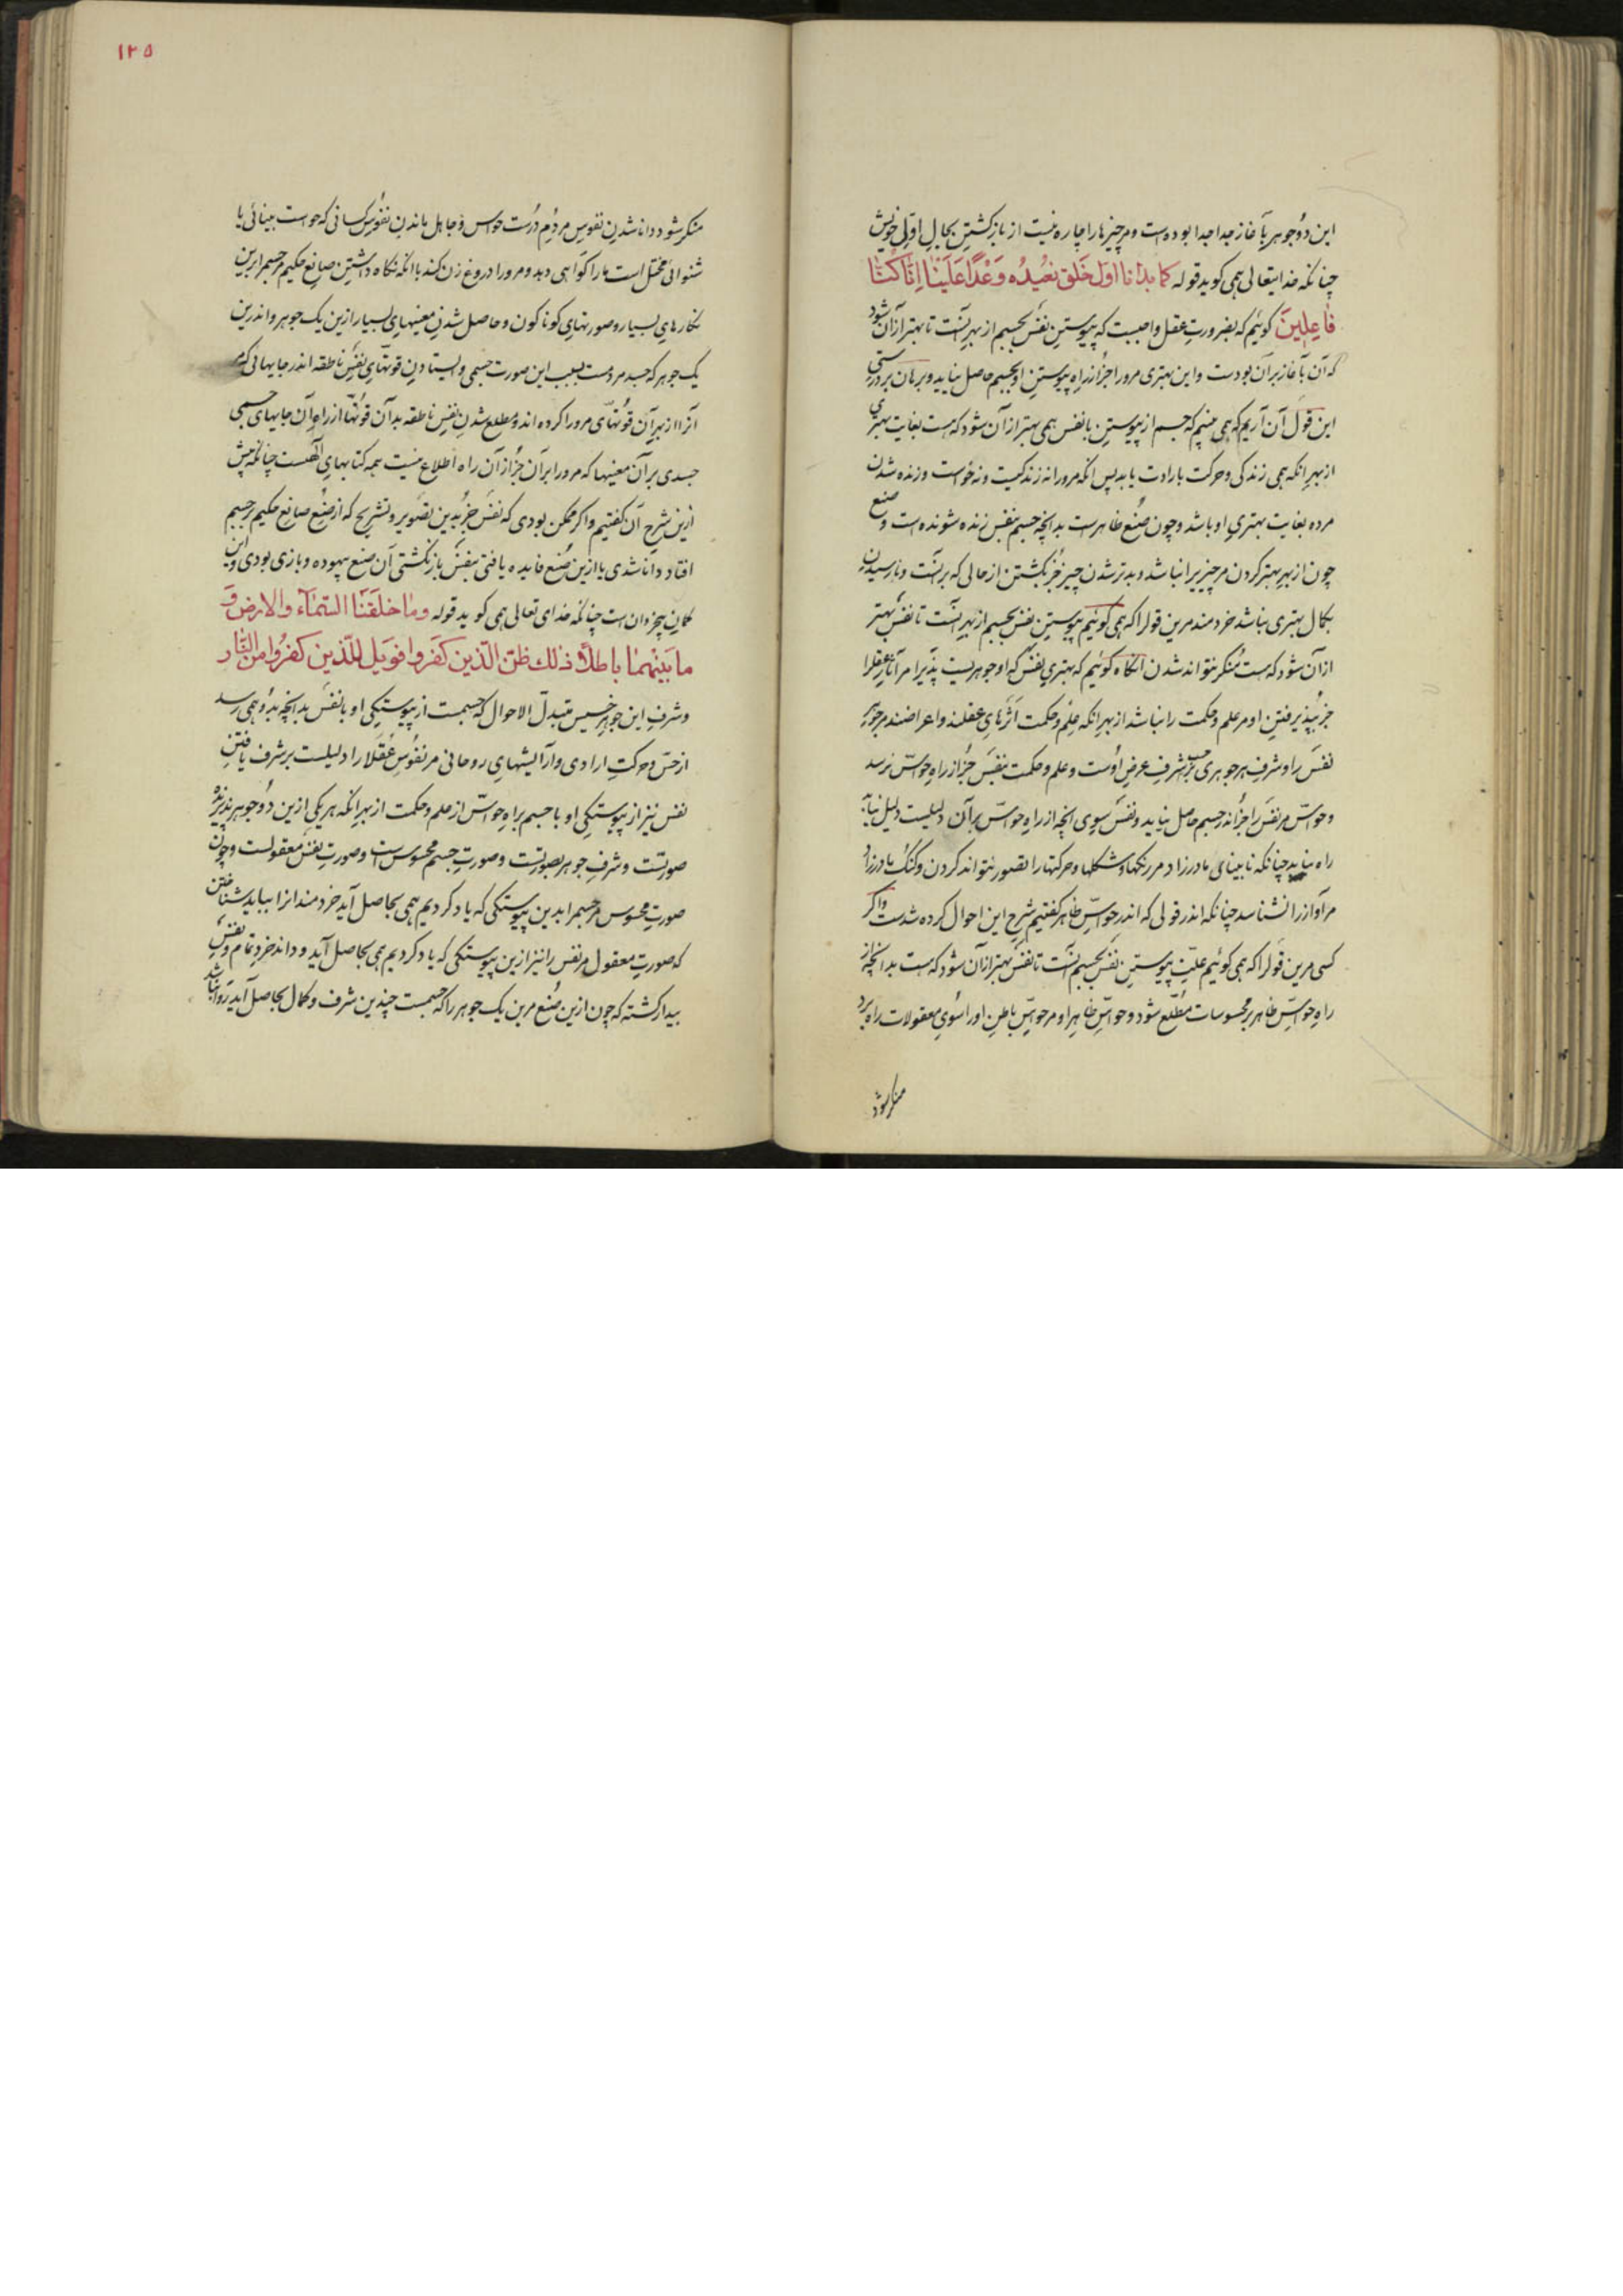 این دو جوهر بآغاز جدا جدا بوده‌ست و مر چیزها را چاره نیست از بازگشتن بحال اوّلی خویش
چنانکه خدایتعالی همی کوید قوله کما بدانا اول خلق نعیده وعدا علینا انا کنا
فاعلین کوئیم که بضرورت عقل واجبست که پیوستن نفس بجسم از بهر آنست تا بهتر از آن شود
که آن بآغاز بر آن بودست و این بهتری مرورا جز از راه پیوستن او بجسم حاصل نیاید و برهان بر درستی
این قول آن آریم که همی بینیم که جسم از پیوستن با نفس همی بهتر از آن شود که هست بغایت بهتری
از بهر انکه همی زندکی و حرکت بارادت یابد پس انکه مرورا نه زندکیست و نه خواست و زنده شدن
مرده بغایت بهتری او باشد و چون صنع ظاهرست بدانچه جسم بنفس زنده شونده است و صنع
چون از بهر بهتر کردن مر چیزیرا باشد و بدتر شدن چیز جز بکشتن از حالی که بر آنست و نارسیدن
بکمال بهتری نباشد خردمند مرین قولرا که همی کوئیم پیوستن نفس بجسم از بهر آنست تا نفس بهتر
از آن شود که هست منکر نتواند شدن آنکاه کوئیم که بهتری نفس که او جوهریست پذیرا مر آثار عقلرا
جز بپذیرفتن او مر علم و حکمت را نباشد از بهر انکه علم و حکمت اثرهای عقلند و اعراضند مر جوهر
نفس را و شرف هر جوهری بشرف عرض اوست و علم و حکمت بنفس جز از راه حواسّ نرسد
و حواسّ مر نفس را جز اندر جسم حاصل نیاید و نفس سوی انچه از راه حواسّ بر آن دلیلست دلیل نیابد
راه نیابد چنانکه نابینای مادرزاد مر رنکها و شکلها و حرکتها را تصور نتواند کردن و کنک مادرزاد
مر آواز را نشناسد چنانکه اندر قولی که اندر حواسّ ظاهر کفتیم شرح این احوال کرده شدست و اکر
کسی مرین قولرا که همی کوئیم علّت پیوستن نفس بجسم آنست تا نفس بهتر از آن شود که هست بدانچه از
راه حواسّ ظاهر بر محسوسات مطّلع شود و حواسّ ظاهر او مر حواسّ باطن او را سوی معقولات راه برد
منکر شود
۱۲۵
منکر شود دانا شدن نفوس مردم درست حواس و جاهل ماندن نفوس کسانی که حواست بینائی یا
شنوائی مختل است ما را کواهی دهد و مرورا دروغ زن کند با انکه نکاه داشتن صانع حکیم مر جسم را برین
نکارهای بسیار و صورتهای کوناکون و حاصل شدن معنیهای بسیار ازین یک جوهر و اندرین
یک جوهر که جسد مردمست بسبب این صورت جسمی و ایستادن قوتهای نفس ناطقه اندر جایهائی که
آنرا از بهر آن قوتهای مرورا کرده اند و مطلع شدن نفس ناطقه بدآن قوتها از راه آن جایهای جسمی
جسدی بر آن معنیها که مرورا بر آن جز از آن راه اطلاع نیست همه کتابهای الهیست چنانکه پیش
ازین شرح آن کفتیم و اکر ممکن بودی که نفس جز بدین تصویر و تشریح که از صنع صانع حکیم بر جسم
افتاد دانا شدی یا ازین صنع فایده یافتی بنفس بازنکشتی آن صنع بیهوده و بازی بودی و این
کمان چزوان است چنانکه خدای تعالی همی کوید قوله وما خلقنا السماء والارض و
ما بینهما باطلا ذلك ظن الذین کفروا فویل للذین کفروا من النار
و شرف این جوهر خسیس متبدل الاحوال که جسمست از پیوستکی او با نفس بدانچه بدو همی رسد
از حسّ و حرکت ارادی و آرایشهای روحانی مر نفوس عقلا را دلیلست بر شرف یافتن
نفس نیز از پیوستکی او با جسم براه حواسّ از علم و حکمت از بهر انکه هر یکی ازین دو جوهر پذیرنده
صورتست و شرف جوهر بصورتست و صورت جسم محسوس است و صورت نفس معقولست و چون
صورت محسوس مر جسم را بدین پیوستکی که یاد کردیم همی بحاصل آید خردمندانرا بباید شناختن
که صورت معقول مر نفس را نیز ازین پیوستکی که یاد کردیم همی بحاصل آید و داند خرد تمام و نفس
بیدار کشته که چون ازین صنع مرین یک جوهر را که جسمست چندین شرف و کمال بحاصل آید روا نباشد